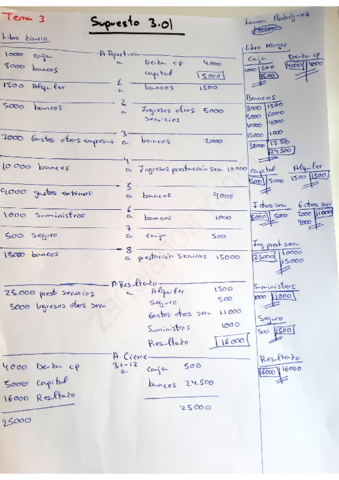 Tema 3
Supuesto 3.01
Libro diario
A. Apertura
1000 caja a Deuda cp 4000
8000 bancos capital 5000
1
1500 Alquiler a bancos 1500
2
5000 bancos a Ingresos otros 5000
servicios
3
2000 Gastos otras empresas a bancos 2000
4
10.000 bancos a Ingresos prestación ser. 10.000
5
9000 gastos externos a bancos 9000
6
1000 Suministros a bancos 1000
7
500 Seguro a caja 500
8
15000 bancos a prestación servicios 15000
A. Resultado
25000 prest servicios a Alquiler 1500
5000 Ingresos otros ser. Seguro 500
Gastos otras ser. 11000
Suministros 1000
Resultado 16000
A. Cierre
31-12
4000 Deuda cp a caja 500
5000 Capital bancos 24.500
16000 Resultado
25000
25000
Libro Mayor
Caja
1000 500
500
Deuda cp
4000 4000
Bancos
8000 1500
5000 2000
10000 9000
15000 1000
38000 13500
24.500
Capital
5000 5000
Alquiler
1500 1500
I otros ser.
5000 5000
G otros ser.
2000 11000
9000
Ing. prest ser.
25000 10000
15000
Suministros
1000 1000
Seguro
500 500
Resultado
16000 16000